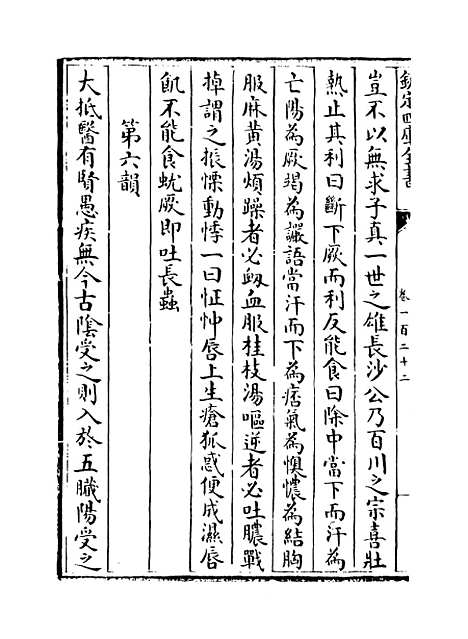 欽定四庫全書
卷一百二十二
豈不以無求子真一世之雄長沙公乃百川之宗喜壯
熱止其利曰斷下厥而利反能食曰除中當下而汗為
亡陽為厥竭為讝語當汗而下為痞氣為懊憹為結胸
服麻黃湯煩躁者必衂血服桂枝湯嘔逆者必吐膿戰
掉謂之振慄動悸一曰怔忡唇上生瘡狐惑便成濕唇
飢不能食蚘厥即吐長蟲
第六韻
大抵醫有賢愚疾無今古陰受之則入於五臟陽受之